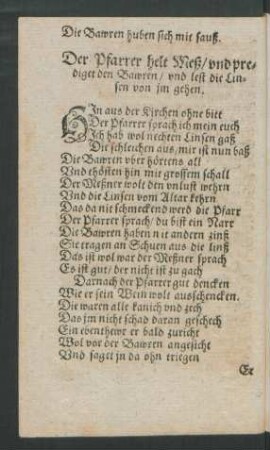 Die Bawren huben sich mit sauß.
Der Pfarrer helt Meß/ vnd pre-
diget den Bawren/ vnd lest die Lin-
sen von jm gehen.
Hin aus der Kirchen ohne bitt
Der Pfarrer sprach ich mein euch
Ich hab wol nechten Linsen gaß
Die schleichen aus/ mir ist nun baß
Die Bawren vber hörtens all
Vnd thösten hin mit grossem schall
Der Meßner wolt den vnlust wehrn
Vnd die Linsen vom Altar kehrn
Das da nit schmeckend werd die Pfarr
Der Pfarrer sprach/ du bist ein Narr
Die Bawren haben nit andern zinß
Sie tragen an Schuen aus die linß
Das ist wol war der Meßner sprach
Es ist gut/ der nicht ist zu gach
Darnach der Pfarrer gut dencken
Wie er sein Wein wolt ausschencken.
Die waren alle kanich vnd zech
Das jm nicht schad daran geschech
Ein ebenthewr er bald zuricht
Wol vor der Bawren angesicht
Vnd saget jn da ohn triegen
Er